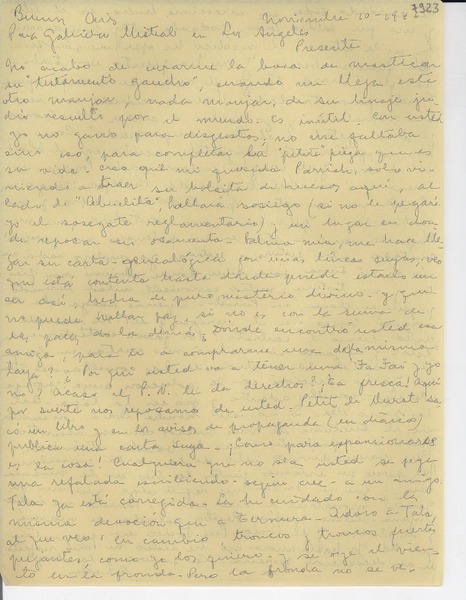 7323
Buenos Aires Noviembre 10-194
Para Gabriela Mistral en Los Angeles
Presente
No acabo de curarme la boca de masticar
su "testamento gaucho", cuando me llega este
otro manjar, nada manjar, de su linaje ju-
dío resulto por el mundo. Es inútil. Con usted
yo no gano para disgustos; no me faltaba
sino eso, para completar la "petite" pieza que es
su vida. Creo que mi querida Parrish, sobre vi-
niendo a traer su bolsita de huesos aquí, al
lado de "Abuelita" hallara sosiego (si no le pegaré
yo el sosegate reglamentario) y un lugar en don-
de reposar su osamenta. Palma mía, me hace lle-
gar su carta genealógica con unas líneas suyas. Veo
que está contenta hasta donde puede estarlo un
ser así, hecha de puro misterio divino. y que
no puede hallar paz, si no es con la suma de
paz de los demás. ¿Dónde encontró usted esa
amiga, para ir a comprarme una de la misma
laya? ¿Por qué usted va a tener una y yo
no? ¿Acaso el P. N. le da derechos? ¡Es fresca! Aquí
por suerte nos reposamos de usted. Petit de Murat sa-
có un libro y en los avisos de propaganda (en diarios)
publica una carta suya. ¡Como para expansionarse
es la cosa! Cualquiera que no sea usted se pega
una refalada escribiendo según cree a un amigo.
Tala ya está corregida. La he cuidado con la
misma devoción que a Ternura. Adoro a Tala,
al que veo en cambio troncos y troncos fuertes
pujantes, como yo los quiero y se oye el vien-
to en la fronda. Pero la fronda no se ve.